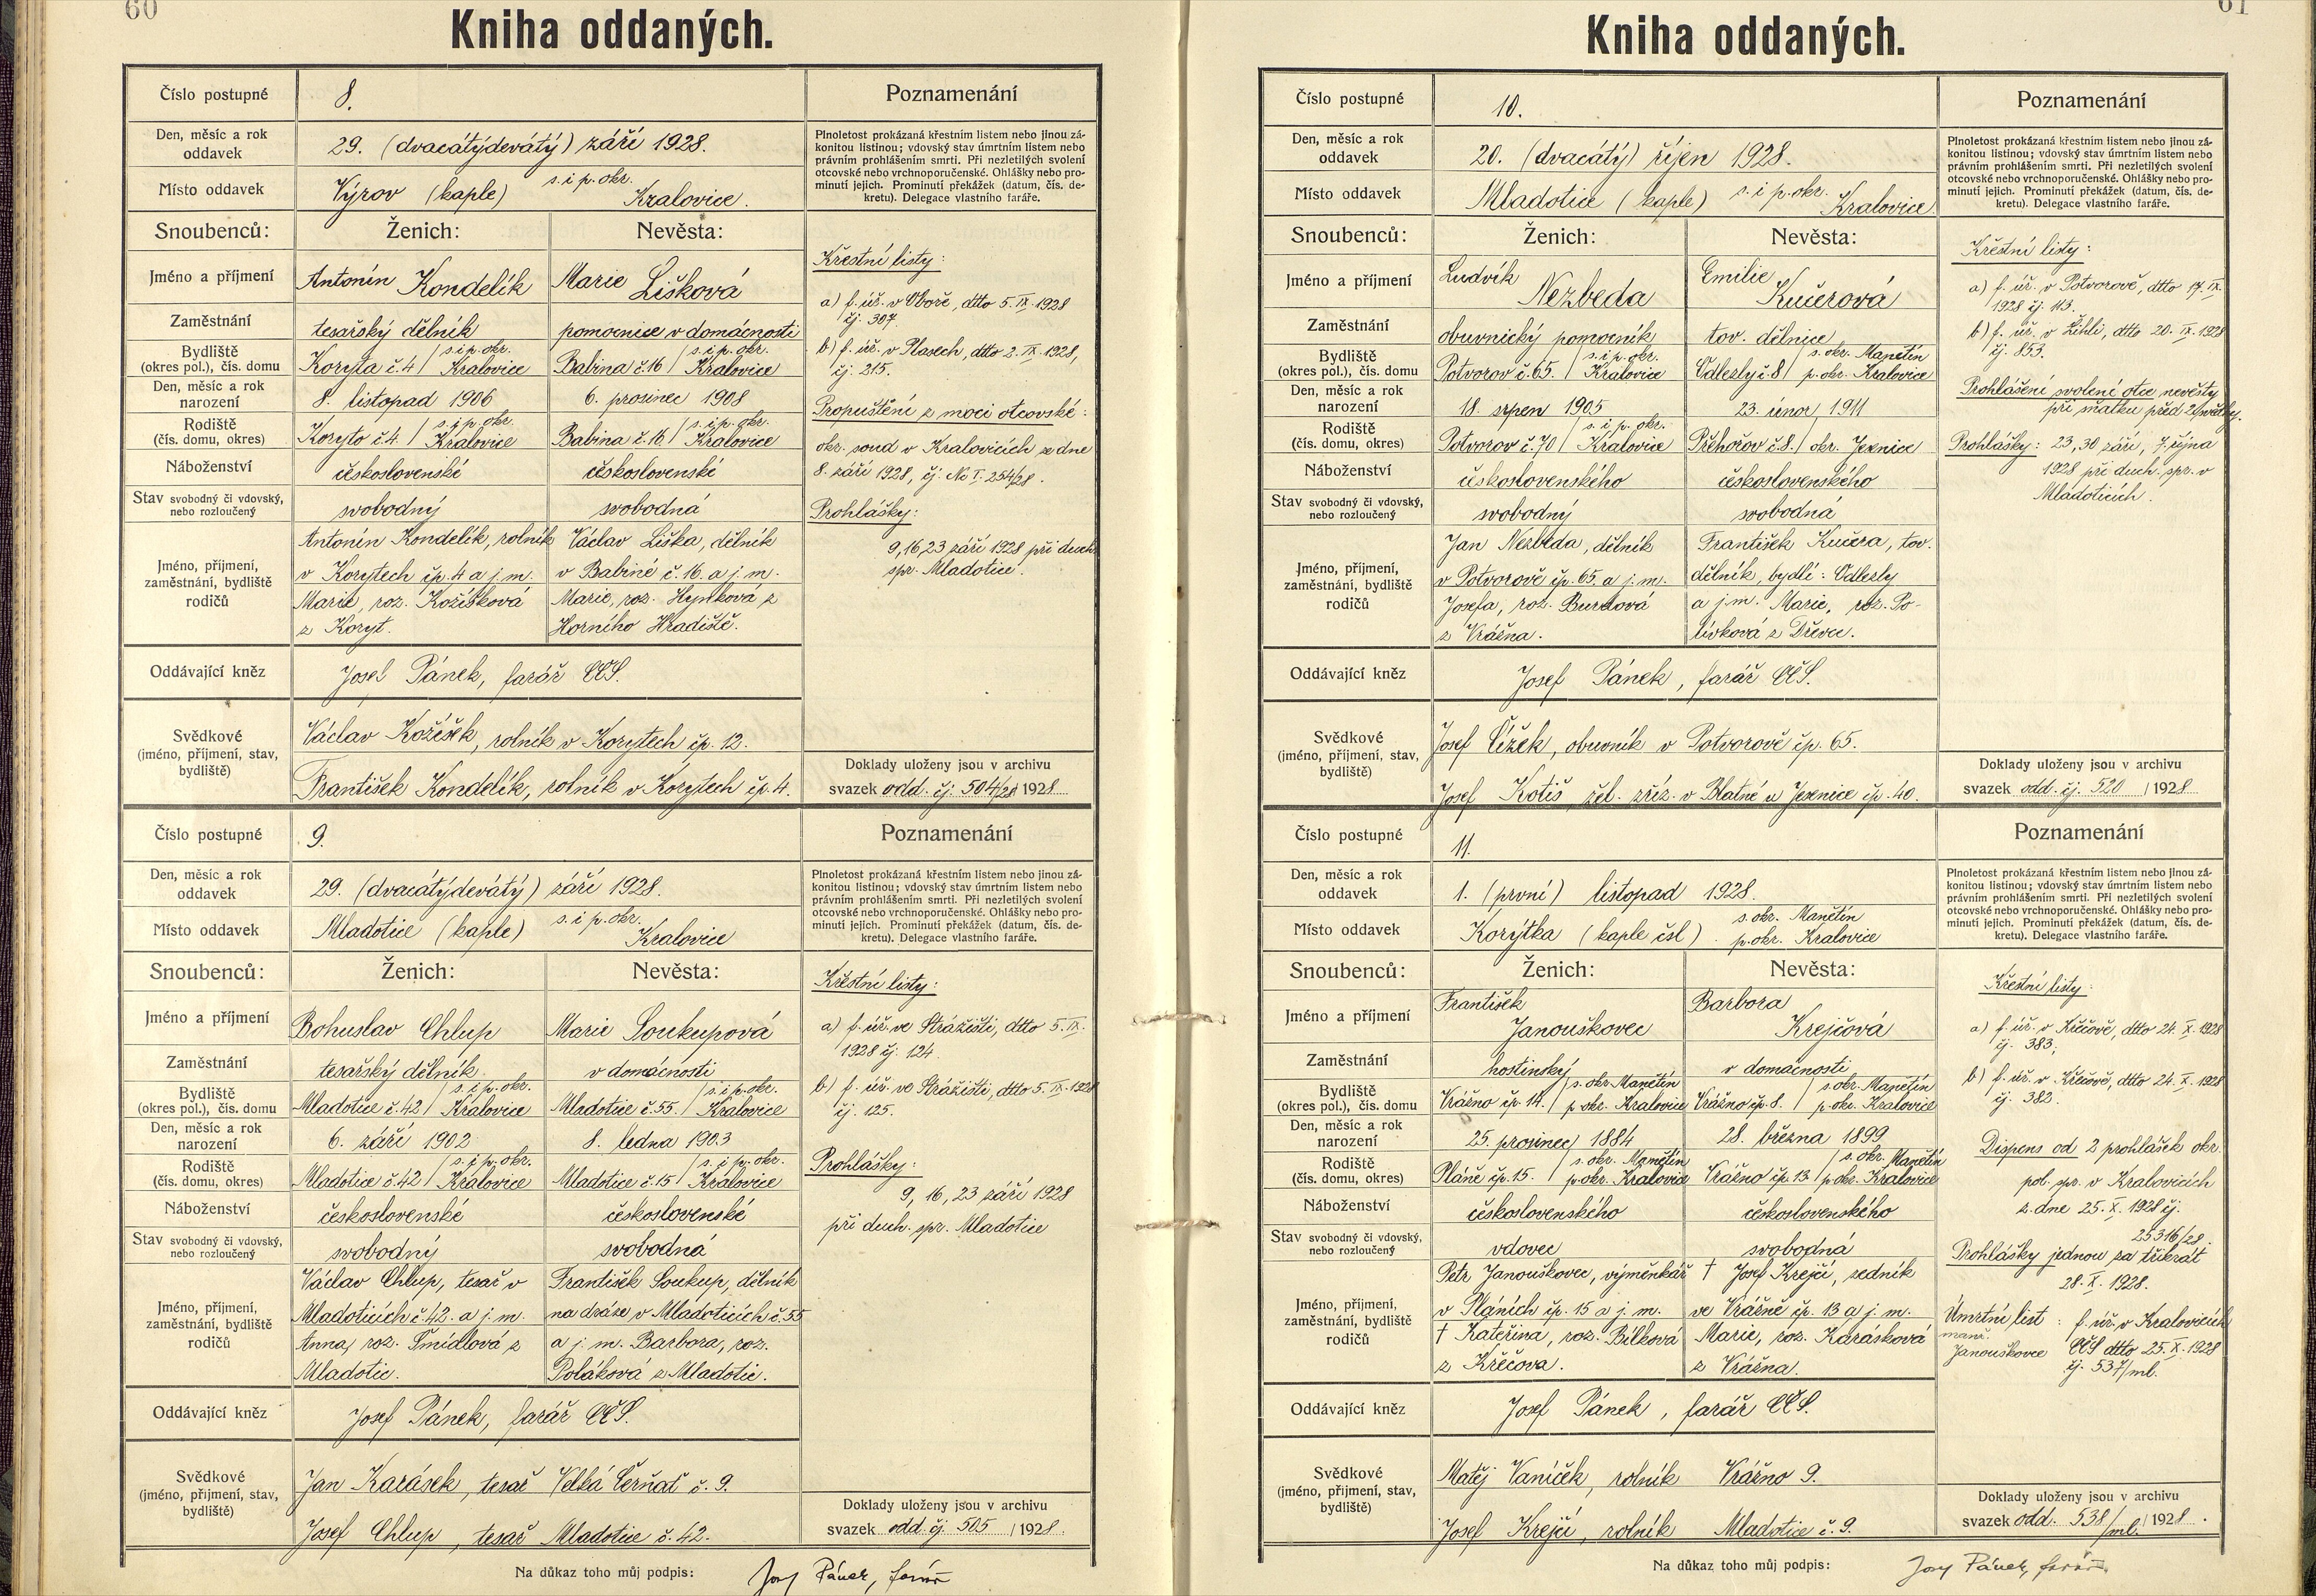 60
Kniha oddaných.
Číslo postupné
8.
Poznamenání
Den, měsíc a rok
oddavek
29. (dvacátýdevátý) září 1928.
Místo oddavek
Výrov (kaple) s. i p. okr. Kralovice.
Plnoletost prokázaná křestním listem nebo jinou zá-
konitou listinou; vdovský stav úmrtním listem nebo
právním prohlášením smrti. Při nezletilých svolení
otcovské nebo vrchnoporučenské. Ohlášky nebo pro-
minutí jejich. Prominutí překážek (datum, čís. de-
kretu). Delegace vlastního faráře.
Snoubenců: Ženich: Nevěsta:
Jméno a příjmení
Antonín Kondelík Marie Lišková
Zaměstnání
tesařský dělník pomocnice v domácnosti
Bydliště
(okres pol.), čís. domu
Koryta č. 4 / s. i p. okr. Kralovice Babina č. 16 / s. i p. okr. Kralovice
Den, měsíc a rok
narození
8. listopad 1906 6. prosinec 1908
Rodiště
(čís. domu, okres)
Koryto č. 4 / s. i p. okr. Kralovice Babina č. 16 / s. i p. okr. Kralovice
Náboženství
československé československé
Stav svobodný či vdovský,
nebo rozloučený
svobodný svobodná
Jméno, příjmení,
zaměstnání, bydliště
rodičů
Antonín Kondelík, rolník
v Korytech čp. 4 a j. m.
Marie, roz. Kožíšková
z Koryt.
Václav Liška, dělník
v Babině č. 16. a j. m.
Marie, roz. Hynková z
Horního Hradiště.
Oddávající kněz
Josef Pánek, farář CČS.
Svědkové
(jméno, příjmení, stav,
bydliště)
Václav Kožíšek, rolník v Korytech čp. 12.
František Kondelík, rolník v Korytech čp. 4.
Křestní listy:
a) f. úř. v Oboře, dtto 5. IX. 1928
čj. 307.
b) f. úř. v Plasech, dtto 2. IX. 1928,
čj. 215.
Propuštění z moci otcovské:
okr. soud v Kralovicích ze dne
8. září 1928, čj. Nc I. 254/28.
Prohlášky:
9, 16, 23 září 1928 při duch.
spr. Mladotice.
Doklady uloženy jsou v archivu
svazek odd. čj. 504/28 1928
Číslo postupné
9.
Poznamenání
Den, měsíc a rok
oddavek
29. (dvacátýdevátý) září 1928.
Místo oddavek
Mladotice (kaple) s. i p. okr. Kralovice
Plnoletost prokázaná křestním listem nebo jinou zá-
konitou listinou; vdovský stav úmrtním listem nebo
právním prohlášením smrti. Při nezletilých svolení
otcovské nebo vrchnoporučenské. Ohlášky nebo pro-
minutí jejich. Prominutí překážek (datum, čís. de-
kretu). Delegace vlastního faráře.
Snoubenců: Ženich: Nevěsta:
Jméno a příjmení
Bohuslav Chlup Marie Soukupová
Zaměstnání
tesařský dělník v domácnosti
Bydliště
(okres pol.), čís. domu
Mladotice č. 42 / s. i p. okr. Kralovice Mladotice č. 55 / s. i p. okr. Kralovice
Den, měsíc a rok
narození
6. září 1902 8. ledna 1903
Rodiště
(čís. domu, okres)
Mladotice č. 42 / s. i p. okr. Kralovice Mladotice č. 15 / s. i p. okr. Kralovice
Náboženství
československé československé
Stav svobodný či vdovský,
nebo rozloučený
svobodný svobodná
Jméno, příjmení,
zaměstnání, bydliště
rodičů
Václav Chlup, tesař v
Mladoticích č. 42. a j. m.
Anna, roz. Šmídlová z
Mladotic.
František Soukup, dělník
na dráze v Mladoticích č. 55
a j. m. Barbora, roz.
Poláková z Mladotic.
Oddávající kněz
Josef Pánek, farář CČS.
Svědkové
(jméno, příjmení, stav,
bydliště)
Jan Karásek, tesař Velká Černať č. 9.
Josef Chlup, tesař Mladotice č. 42.
Křestní listy:
a) f. úř. ve Strážišti, dtto 5. IX.
1928 čj. 124.
b) f. úř. ve Strážišti, dtto 5. IX. 1928
čj. 125.
Prohlášky:
9, 16, 23 září 1928
při duch. spr. Mladotice
Doklady uloženy jsou v archivu
svazek odd. čj. 505 / 1928.
Na důkaz toho můj podpis: Jos. Pánek, farář
61
Kniha oddaných.
Číslo postupné
10.
Poznamenání
Den, měsíc a rok
oddavek
20. (dvacátý) říjen 1928.
Místo oddavek
Mladotice (kaple) s. i p. okr. Kralovice
Plnoletost prokázaná křestním listem nebo jinou zá-
konitou listinou; vdovský stav úmrtním listem nebo
právním prohlášením smrti. Při nezletilých svolení
otcovské nebo vrchnoporučenské. Ohlášky nebo pro-
minutí jejich. Prominutí překážek (datum, čís. de-
kretu). Delegace vlastního faráře.
Snoubenců: Ženich: Nevěsta:
Jméno a příjmení
Ludvík Nezbeda Emilie Kučerová
Zaměstnání
obuvnický pomocník tov. dělnice
Bydliště
(okres pol.), čís. domu
Potvorov č. 65. / s. i p. okr. Kralovice Odlezly č. 8 / s. okr. Manětín p. okr. Kralovice
Den, měsíc a rok
narození
18. srpen 1905 23. únor 1911
Rodiště
(čís. domu, okres)
Potvorov č. 70 / s. i p. okr. Kralovice Přehořov č. 8. / okr. Jesenice
Náboženství
československého československého
Stav svobodný či vdovský,
nebo rozloučený
svobodný svobodná
Jméno, příjmení,
zaměstnání, bydliště
rodičů
Jan Nezbeda, dělník
v Potvorově čp. 65. a j. m.
Josefa, roz. Burdová
z Vrážna.
František Kučera, tov.
dělník, bydlí: Odlezly
a j. m. Marie, roz. Po-
lívková z Dřevce.
Oddávající kněz
Josef Pánek, farář CČS.
Svědkové
(jméno, příjmení, stav,
bydliště)
Josef Čížek, obuvník v Potvorově čp. 65.
Josef Kotiš, žel. zříz. v Blatné u Jesenice čp. 40.
Křestní listy:
a) f. úř. v Potvorově, dtto 17. IX.
1928 čj. 113.
b) f. úř. v Žihli, dtto 20. IX. 1928
čj. 853.
Prohlášení svolení otce nevěsty
při sňatku před 2 svědky.
Prohlášky: 23, 30 září, 7. října
1928 při duch. spr. v
Mladoticích.
Doklady uloženy jsou v archivu
svazek odd. čj. 520 / 1928
Číslo postupné
11.
Poznamenání
Den, měsíc a rok
oddavek
1. (první) listopad 1928.
Místo oddavek
Korýtka (kaple čsl). s. okr. Manětín p. okr. Kralovice
Plnoletost prokázaná křestním listem nebo jinou zá-
konitou listinou; vdovský stav úmrtním listem nebo
právním prohlášením smrti. Při nezletilých svolení
otcovské nebo vrchnoporučenské. Ohlášky nebo pro-
minutí jejich. Prominutí překážek (datum, čís. de-
kretu). Delegace vlastního faráře.
Snoubenců: Ženich: Nevěsta:
Jméno a příjmení
František Janouškovec Barbora Krejčová
Zaměstnání
hostinský v domácnosti
Bydliště
(okres pol.), čís. domu
Vrážno čp. 14. / s. okr. Manětín p. okr. Kralovice Vrážno čp. 8. / s. okr. Manětín p. okr. Kralovice
Den, měsíc a rok
narození
25. prosinec 1884 28. března 1899
Rodiště
(čís. domu, okres)
Pláně čp. 15. / s. okr. Manětín p. okr. Kralovice Vrážno čp. 13 / s. okr. Manětín p. okr. Kralovice
Náboženství
československého československého
Stav svobodný či vdovský,
nebo rozloučený
vdovec svobodná
Jméno, příjmení,
zaměstnání, bydliště
rodičů
Petr Janouškovec, výměnkář
v Pláních čp. 15 a j. m.
† Kateřina, roz. Bílková
z Křečova.
† Josef Krejčí, zedník
ve Vrážně čp. 13 a j. m.
Marie, roz. Karásková
z Vrážna.
Oddávající kněz
Josef Pánek, farář CČS.
Svědkové
(jméno, příjmení, stav,
bydliště)
Matěj Vaníček, rolník Vrážno 9.
Josef Krejčí, rolník Mladotice č. 9.
Křestní listy:
a) f. úř. v Křečově, dtto 24. X. 1928
čj. 383;
b) f. úř. v Křečově, dtto 24. X. 1928
čj. 382.
Dispens od 2 prohlášek okr.
pol. spr. v Kralovicích
z dne 25. X. 1928 čj.
25316/28.
Prohlášky jednou za třikrát
28. X. 1928.
Úmrtní list : f. úř. v Kralovicích
manž.
Janouškovce CČS dtto 25. X. 1928
čj. 537/ml.
Doklady uloženy jsou v archivu
svazek odd. 538/ml. / 1928.
Na důkaz toho můj podpis: Jos. Pánek, farář.